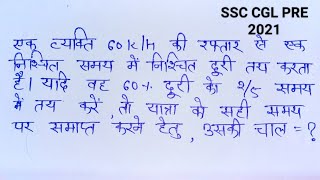 SSC CGL PRE
2021
एक व्यक्ति 60 k/H की रफ्तार से एक
निश्चित समय में निश्चित दूरी तय करता
है। यदि वह 60% दूरी को 2/5 समय
में तय करें, तो यात्रा को सही समय
पर समाप्त करने हेतु, उसकी चाल = ?